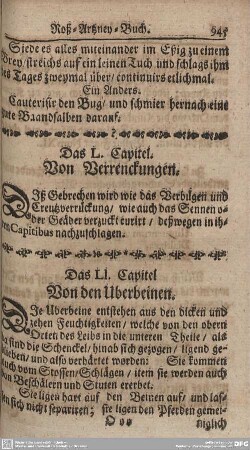 Roß-Artzney-Buch. 945
Siede es alles miteinander im Eßig zu einem
Brey / streichs auf ein leinen Tuch und schlags ihm
des Tages zweymal über / continuirs etlichmal.
Ein Anders.
Cauterisir den Bug / und schmier hernach eine
gute Brandsalben darauf.
Das L. Capitel.
Von Verrenckungen.
DIß Gebrechen wird wie das Verbügen und
Creutzverrückung / wie auch das Sennen o-
der Geäder verzuckt curirt / deßwegen in ih-
ren Capitibus nachzuschlagen.
Das LI. Capitel
Von den Uberbeinen.
DIe Uberbeine entstehen aus den dicken und
zehen Feuchtigkeiten / welche von den obern
Orten des Leibs in die unteren Theile / als
da sind die Schenckel / hinab sich gezogen / ligend ge-
blieben / und also verhärtet worden: Sie kommen
auch vom Stossen / Schlägen / item sie werden auch
von Beschälern und Stuten ererbet.
Sie ligen hart auf den Beinen auf / und las-
sen sich nicht separiren; sie ligen den Pferden gemei-
O o o niglich